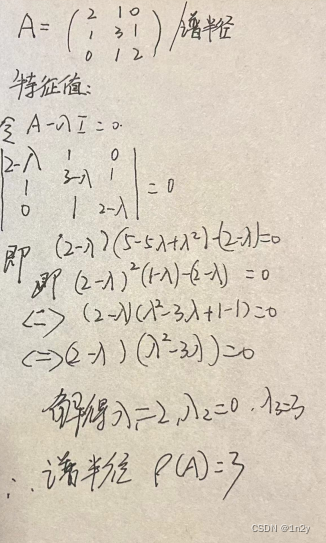 A = ( 2 1 0 ) 谱半径
( 1 3 1 )
( 0 1 2 )
特征值:
令 A-λI=0.
| 2-λ 1 0 |
| 1 3-λ 1 | =0
| 0 1 2-λ |
即 (2-λ)(5-5λ+λ²)-(2-λ)=0
即 (2-λ)²(1-λ)-(2-λ) =0
<=> (2-λ)(λ²-3λ+1-1)=0
<=> (2-λ)(λ²-3λ)=0
解得λ₁=2,λ₂=0.λ₃=3
∴ 谱半径 ρ(A)=3
CSDN @1n2y